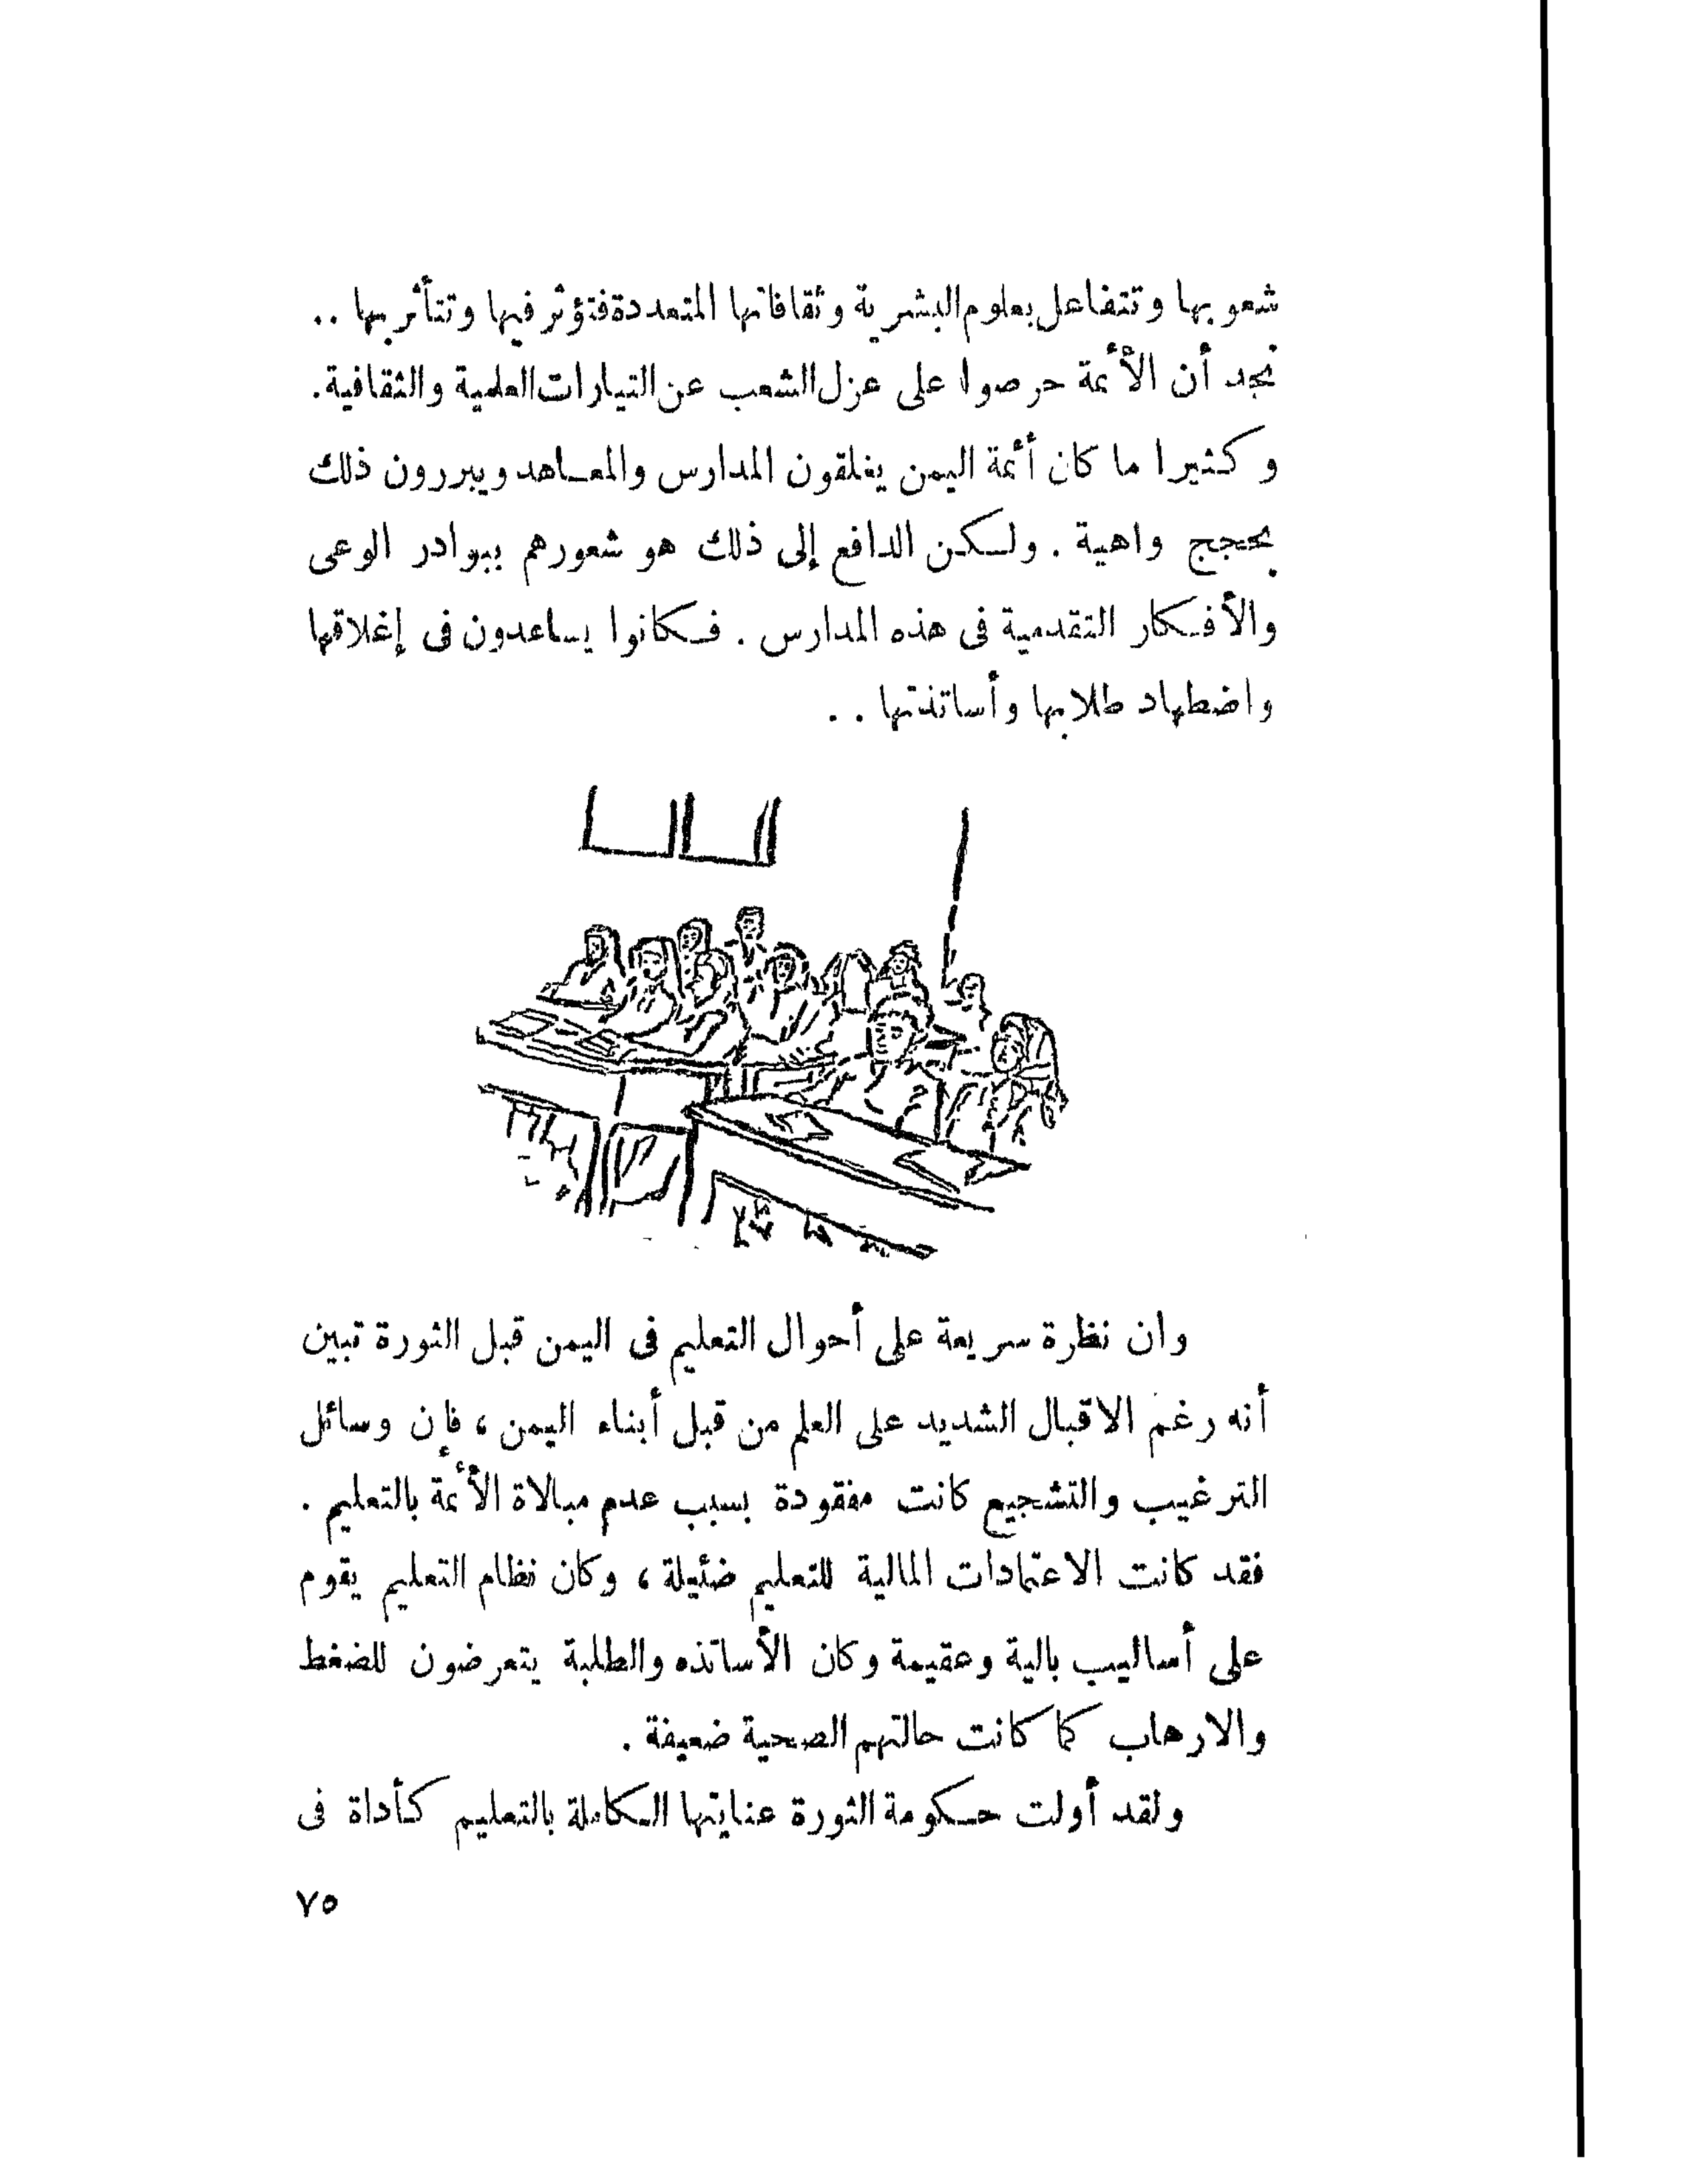 شعوبها وتتفاعل بعلوم البشرية وثقافاتها المتعددة فتؤثر فيها وتتأثر بها ..
نجد أن الأئمة حرصوا على عزل الشعب عن التيارات العلمية والثقافية.
وكثيرا ما كان أئمة اليمن يغلقون المدارس والمعاهد ويبررون ذلك
بحجج واهية . ولكن الدافع إلى ذلك هو شعورهم ببوادر الوعى
والأفكار التقدمية فى هذه المدارس . فكانوا يساعدون فى إغلاقها
واضطهاد طلابها وأساتذتها ..
وان نظرة سريعة على أحوال التعليم فى اليمن قبل الثورة تبين
أنه رغم الاقبال الشديد على العلم من قبل أبناء اليمن ، فإن وسائل
الترغيب والتشجيع كانت مفقودة بسبب عدم مبالاة الأئمة بالتعليم .
فقد كانت الاعتمادات المالية للتعليم ضئيلة ، وكان نظام التعليم يقوم
على أساليب بالية وعقيمة وكان الأساتذه والطلبة يتعرضون للضغط
والارهاب كما كانت حالتهم الصحية ضعيفة .
ولقد أولت حكومة الثورة عنايتها الكاملة بالتعليم كأداة فى
٧٥